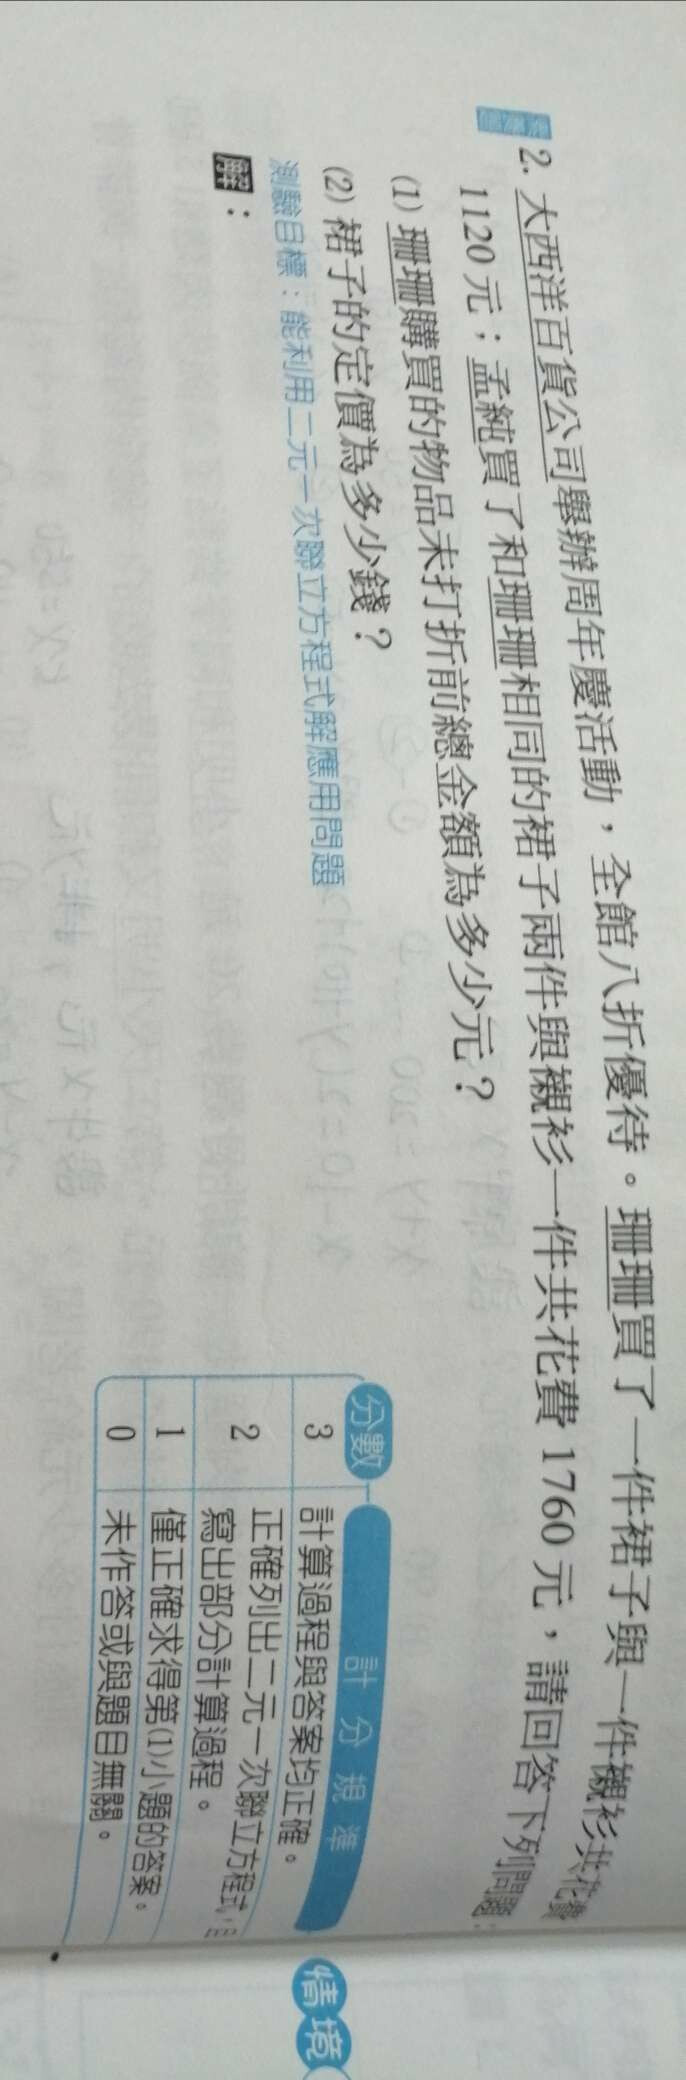 2. 大西洋百貨公司舉辦周年慶活動，全館八折優待。珊珊買了一件裙子與一件襯衫共花費
1120元；孟純買了和珊珊相同的裙子兩件與襯衫一件共花費1760元，請回答下列問題：
(1) 珊珊購買的物品未打折前總金額為多少元？
(2) 裙子的定價為多少錢？
測驗目標：能利用二元一次聯立方程式解應用問題
解：
分數 計分規準
3 計算過程與答案均正確。
2 正確列出二元一次聯立方程式，
寫出部分計算過程。
1 僅正確求得第(1)小題的答案。
0 未作答或與題目無關。
情境